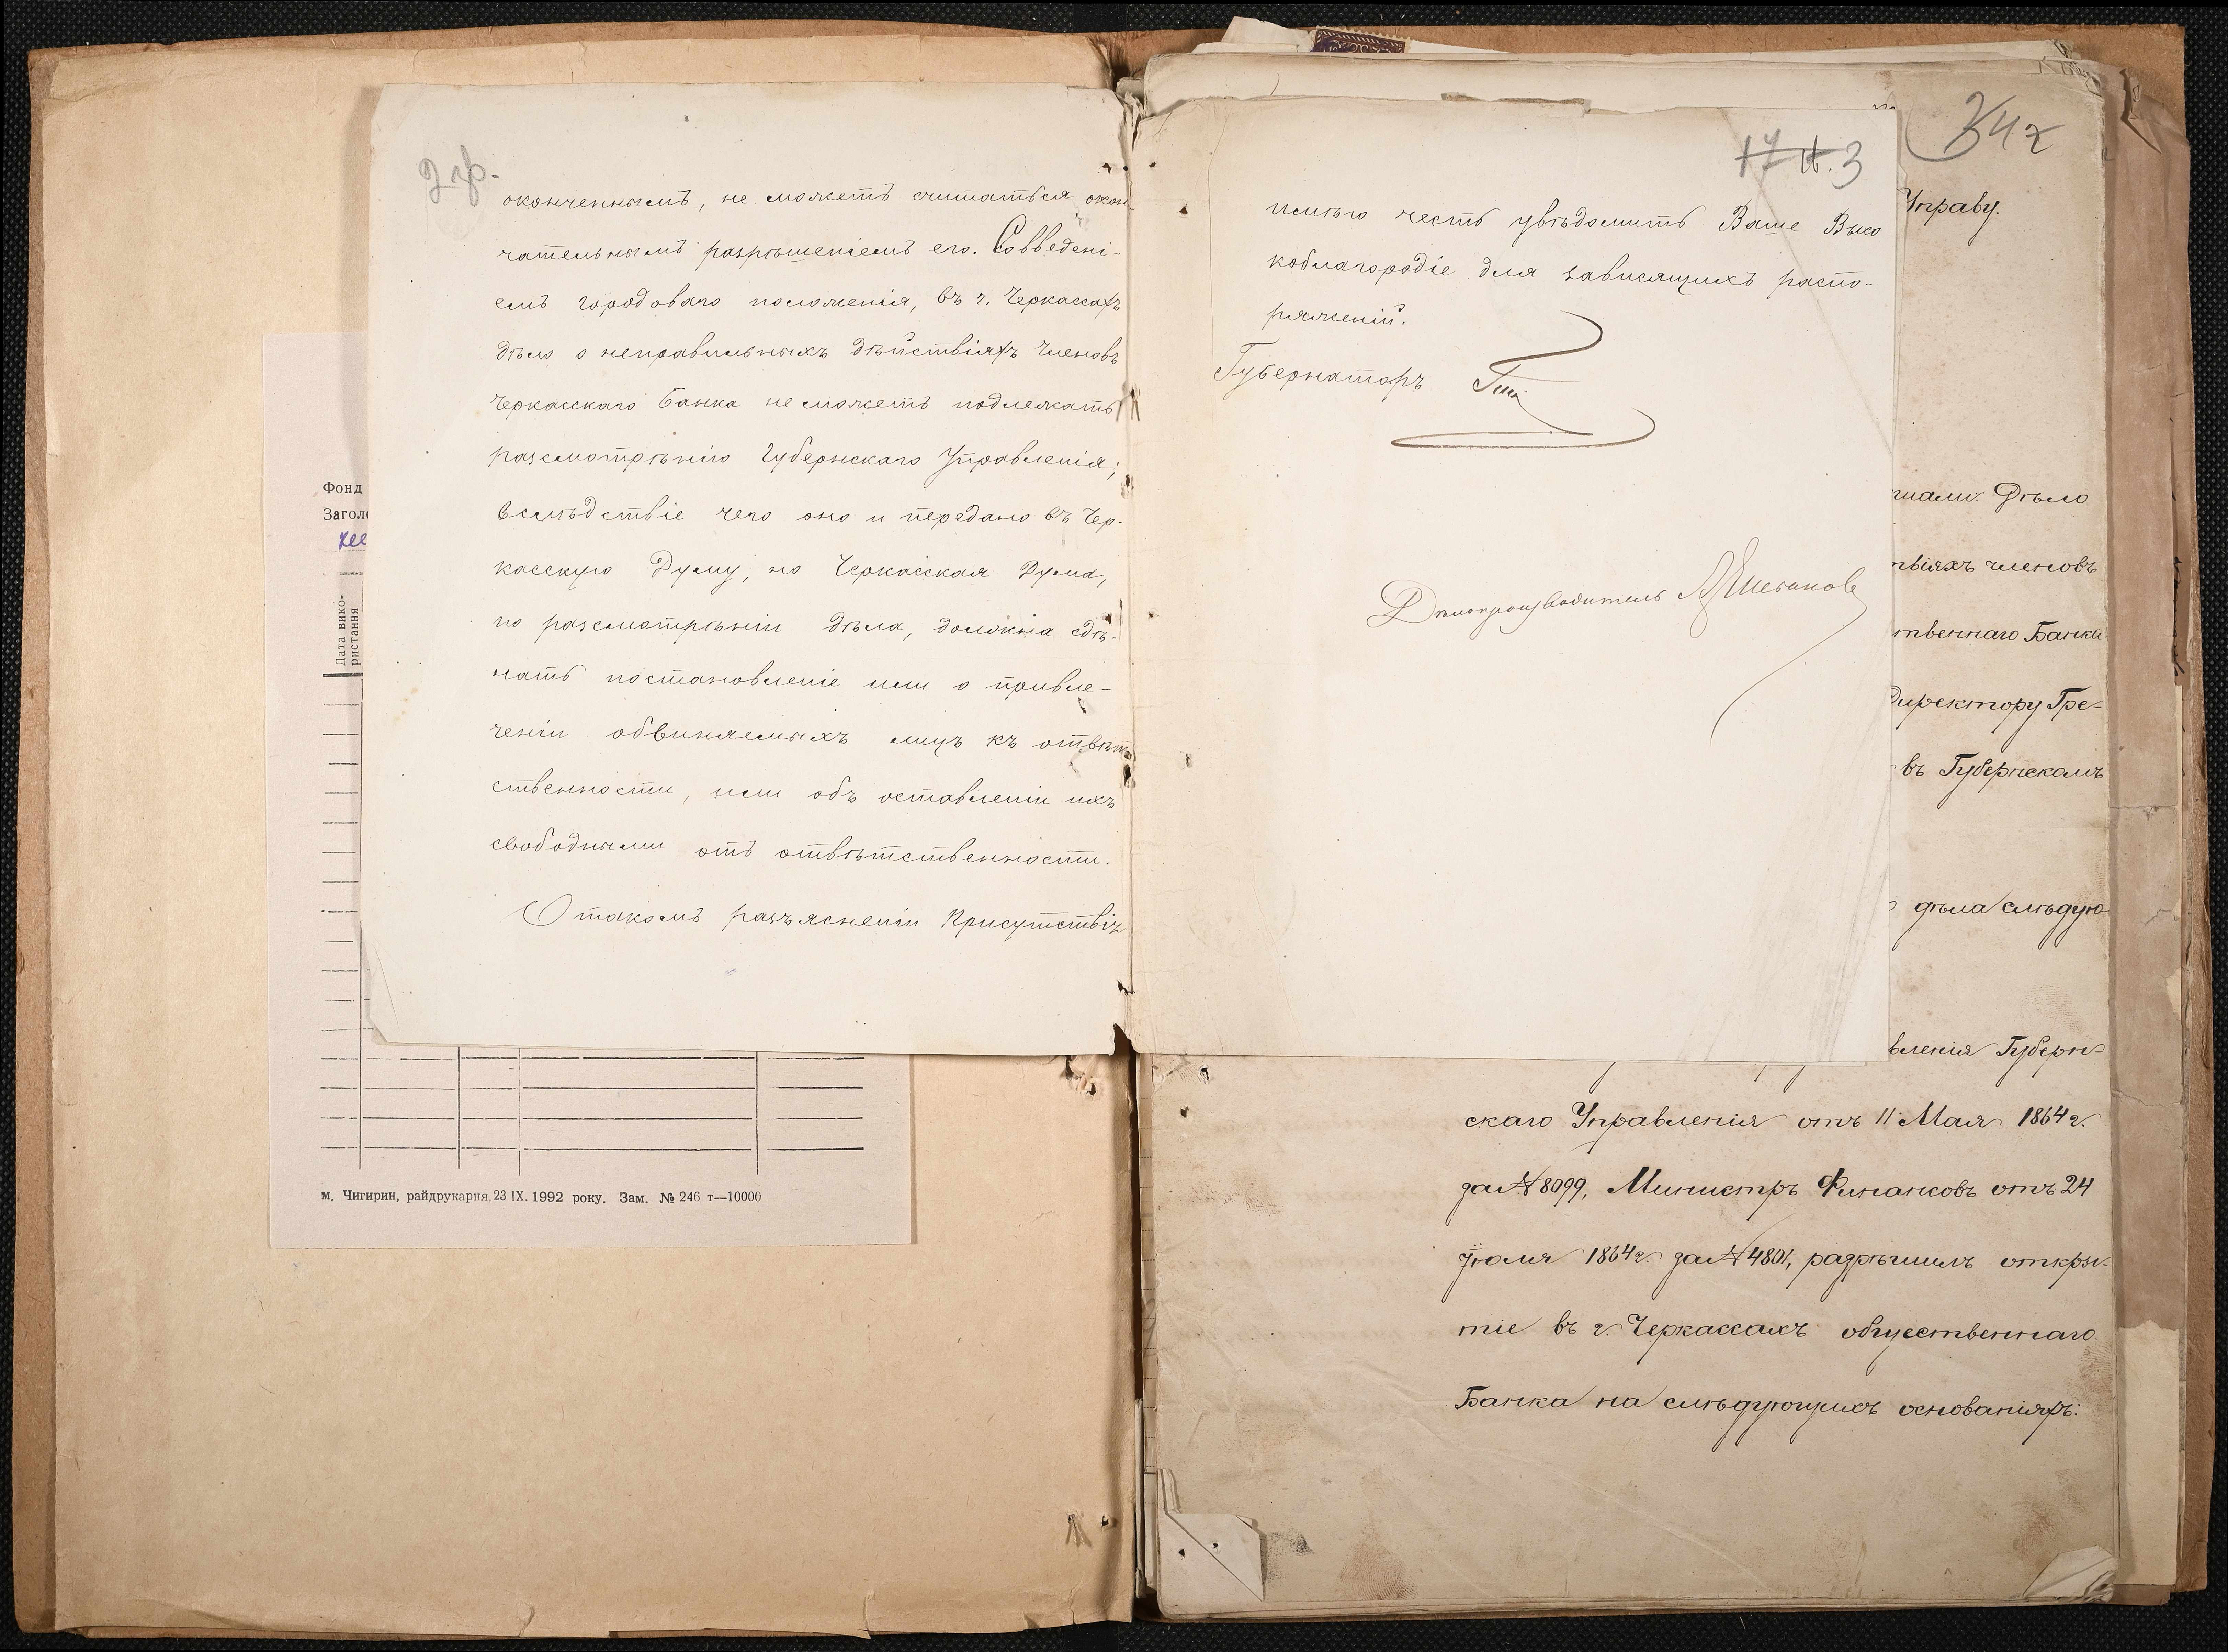 2 зв.
оконченнымъ, не можетъ считаться окон
чательнымъ разрѣшеніемъ его. Съ введені-
емъ городоваго положенія, въ г. Черкассахъ
дѣло о неправильныхъ дѣйствіяхъ членовъ
Черкасскаго Банка не можетъ подлежать
разсмотрѣнію Губернскаго Управленія;
вслѣдствіе чего оно и передано въ Чер-
касскую Думу, но Черкасская Дума,
по разсмотрѣніи дѣла, должна сдѣ-
лать постановленіе или о привле-
ченіи обвиняемыхъ лицъ къ отвѣт
ственности, или объ оставленіи ихъ
свободными отъ отвѣтственности.
О такомъ разъясненіи Присутствія
Фонд
Загол
Дата вико-
ристання
м. Чигирин, райдрукарня, 23 IX. 1992 року. Зам. № 246 т—10000
17 3
имѣю честь увѣдомить Ваше Высо
коблагородіе для зависящихъ распо-
ряженій.
Губернаторъ
Дѣлопроизводитель
342
Управу.
Дѣло
твіяхъ членовъ
твеннаго Банка
Директору Гре-
въ Губернскомъ
дѣла слѣдую
вленія Губерн-
скаго Управленія отъ 11 Мая 1864 г.
за № 8099, Министръ Финансовъ отъ 24
Іюля 1864 г. за № 4801, разрѣшилъ откры-
тіе въ г. Черкассахъ общественнаго
Банка на слѣдующихъ основаніяхъ: